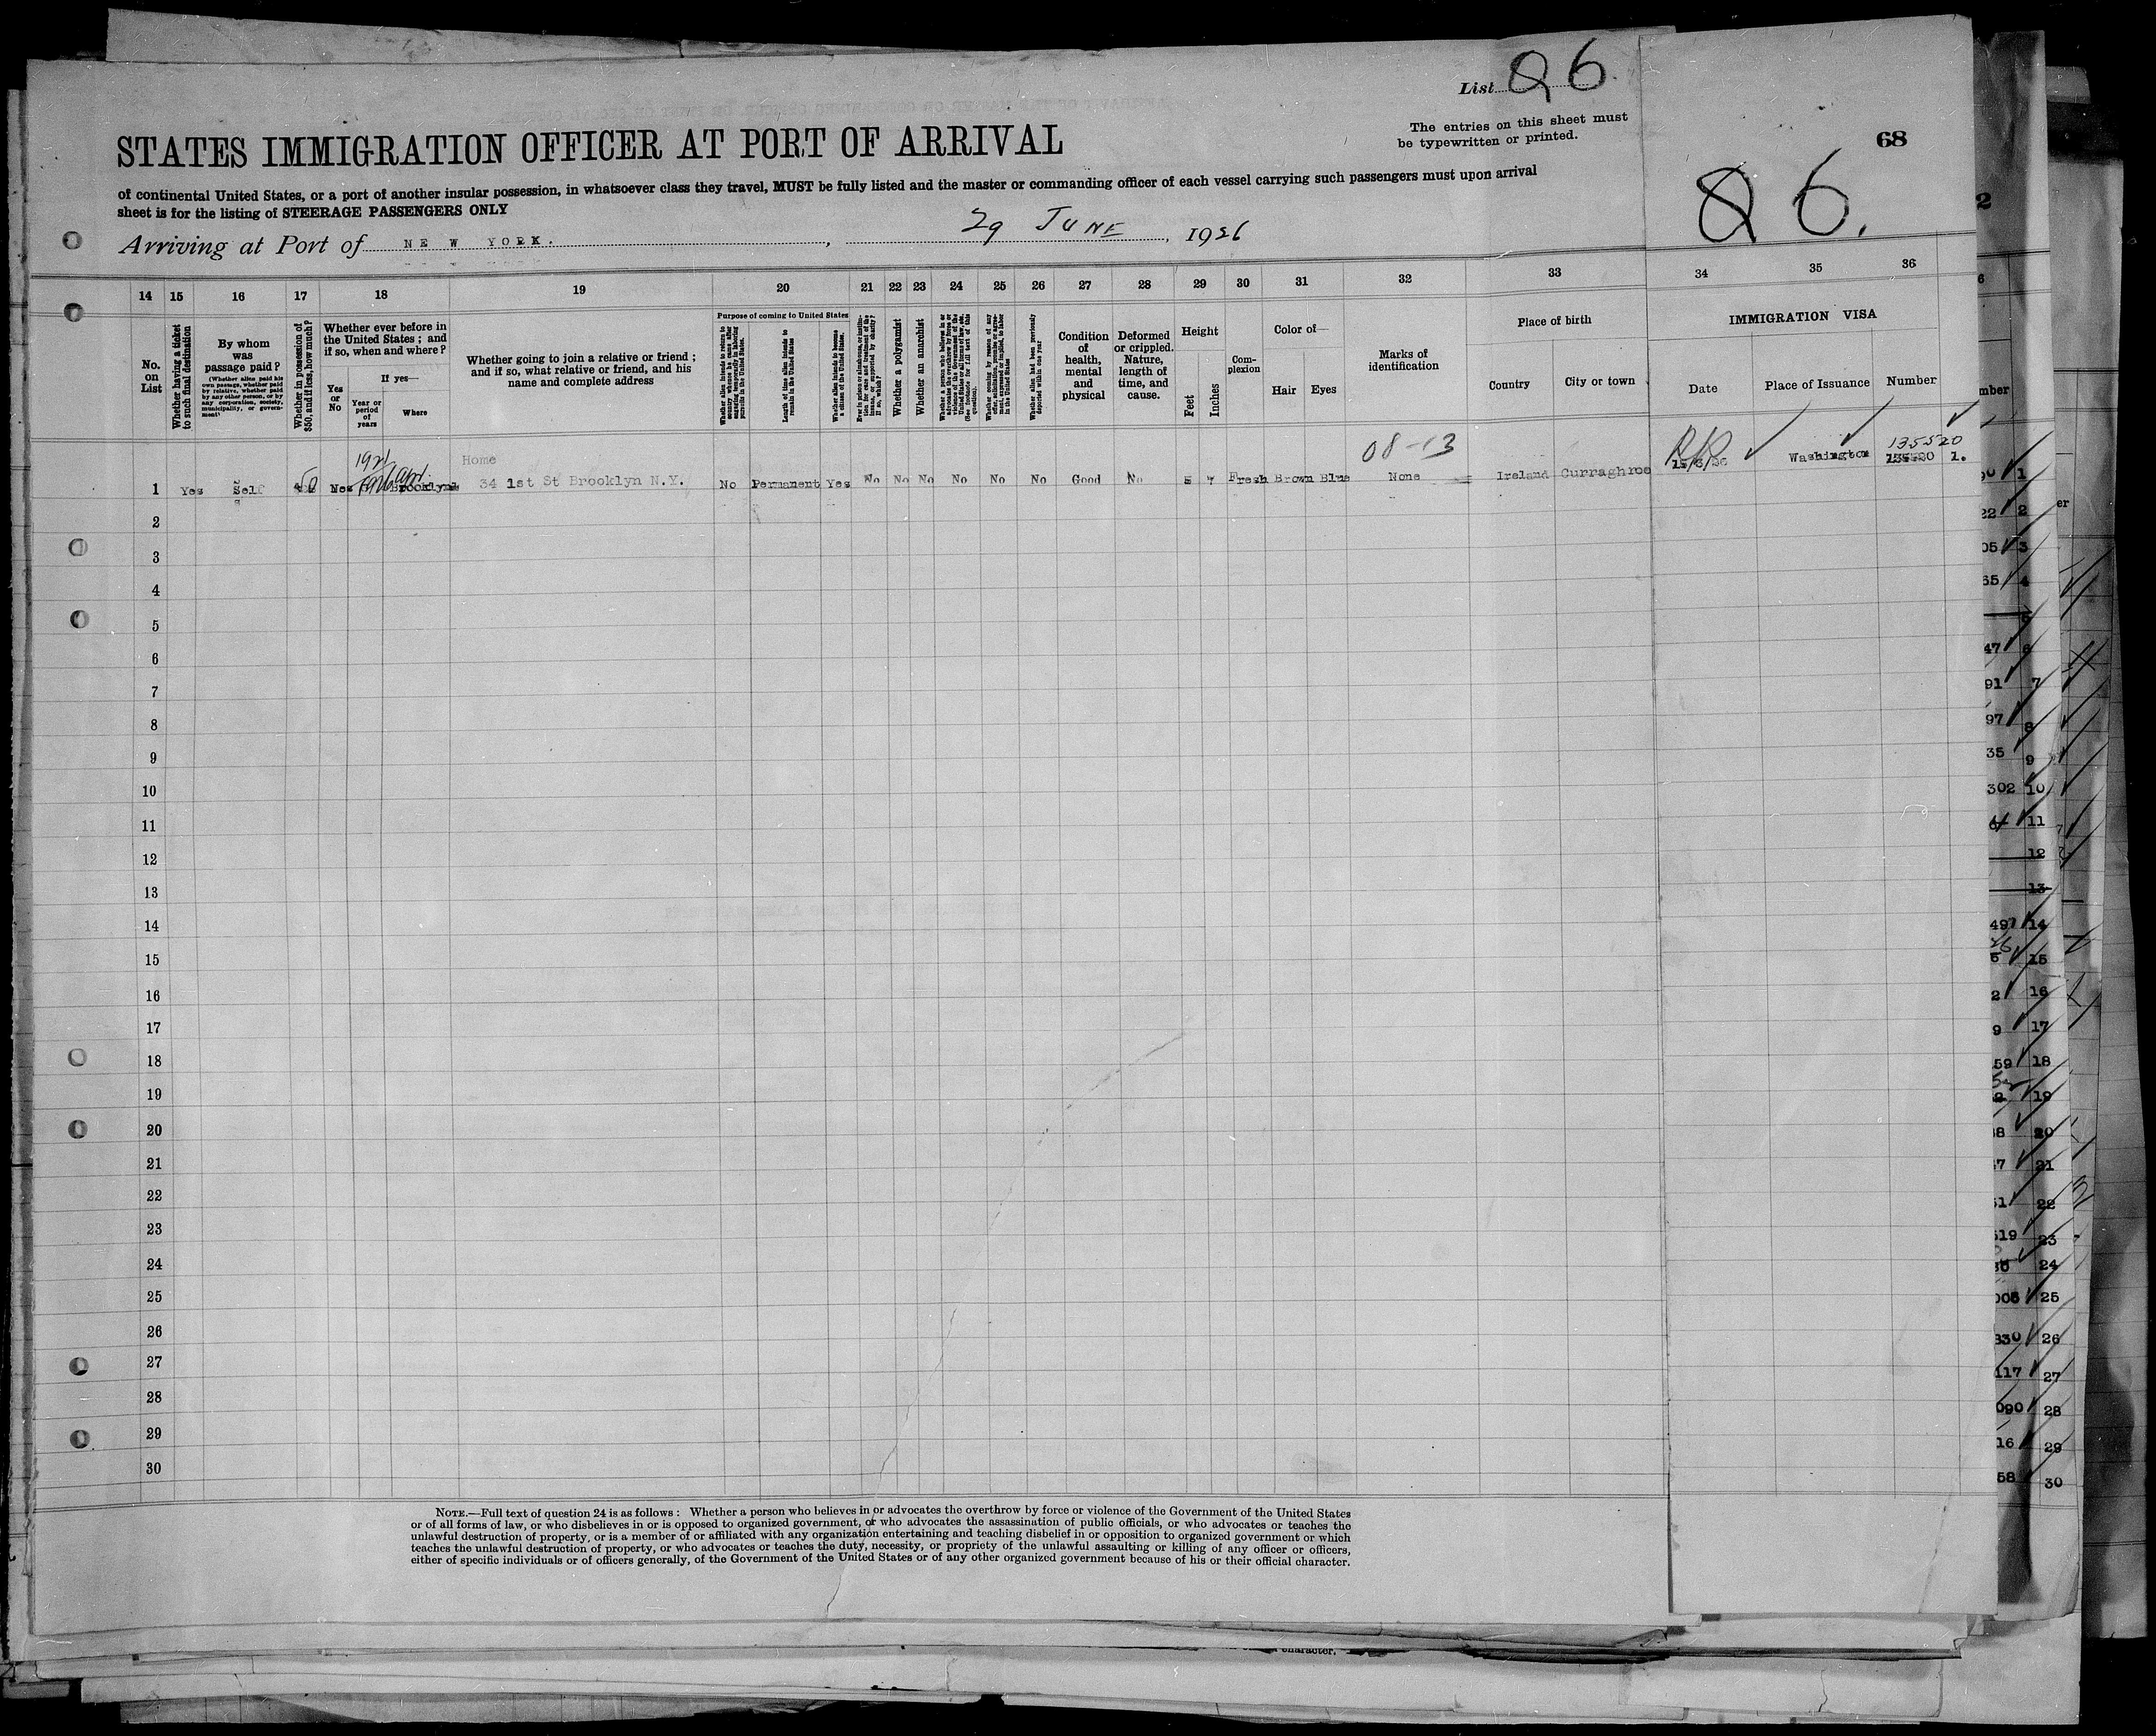 List 26
The entries on this sheet must
be typewritten or printed.
68
26.
STATES IMMIGRATION OFFICER AT PORT OF ARRIVAL
of continental United States, or a port of another insular possession, in whatsoever class they travel, MUST be fully listed and the master or commanding officer of each vessel carrying such passengers must upon arrival
sheet is for the listing of STEERAGE PASSENGERS ONLY
Arriving at Port of NEW YORK. , 29 JUNE , 1926
14 15 16 17 18 19 20 21 22 23 24 25 26 27 28 29 30 31 32 33 34 35 36
No.
on
List
Whether having a ticket
to such final destination
By whom
was
passage paid?
(Whether alien paid his
own passage, whether paid
by relative, whether paid
by any other person, or by
any corporation, society,
municipality, or govern-
ment)
Whether in possession of
$50, and if less, how much?
Whether ever before in
the United States; and
if so, when and where?
Yes
or
No
If yes—
Year or
period
of
years
Where
Whether going to join a relative or friend;
and if so, what relative or friend, and his
name and complete address
Purpose of coming to United States
Whether alien intends to return to
country whence he came after
engaging temporarily in laboring
pursuits in the United States.
Length of time alien intends to
remain in the United States
Whether alien intends to become
a citizen of the United States.
Ever in prison or almshouse, or institu-
tion for care and treatment of the
insane, or supported by charity?
If so, which?
Whether a polygamist
Whether an anarchist
Whether a person who believes in or
advocates the overthrow by force or
violence of the Government of the
United States or all forms of law, etc.
(See footnote for full text of this
question).
Whether coming by reason of any
offer, solicitation, promise or agree-
ment, expressed or implied, to labor
in the United States
Whether alien had been previously
deported within one year
Condition
of
health,
mental
and
physical
Deformed
or crippled.
Nature,
length of
time, and
cause.
Height
Feet
Inches
Com-
plexion
Color of—
Hair Eyes
Marks of
identification
Place of birth
Country City or town
IMMIGRATION VISA
Date Place of Issuance Number
08-13
1921
Home
135520
1 Yes Self 50 Brooklyn 34 1st St Brooklyn N.Y. No Permanent Yes No No No No No No Good No 5 7 Fresh Brown Blue None Ireland Curraghroe Washington 1.
2
3
4
5
6
7
8
9
10
11
12
13
14
15
16
17
18
19
20
21
22
23
24
25
26
27
28
29
30
NOTE.—Full text of question 24 is as follows: Whether a person who believes in or advocates the overthrow by force or violence of the Government of the United States
or of all forms of law, or who disbelieves in or is opposed to organized government, or who advocates the assassination of public officials, or who advocates or teaches the
unlawful destruction of property, or is a member of or affiliated with any organization entertaining and teaching disbelief in or opposition to organized government or which
teaches the unlawful destruction of property, or who advocates or teaches the duty, necessity, or propriety of the unlawful assaulting or killing of any officer or officers,
either of specific individuals or of officers generally, of the Government of the United States or of any other organized government because of his or their official character.
character.